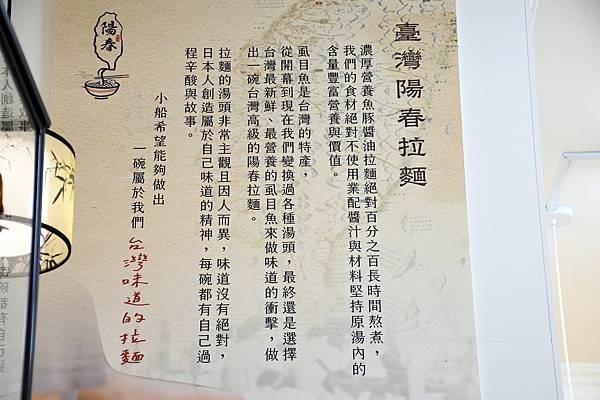 臺灣陽春拉麵
濃厚營養魚豚醬油拉麵絕對百分之百長時間熬煮，
我們的食材絕對不使用業配醬汁與材料堅持原湯內的
含量豐富營養與價值。
虱目魚是台灣的特產，
從開幕到現在我們變換過各種湯頭，最終還是選擇
台灣最新鮮、最營養的虱目魚來做味道的衝擊，做
出一碗台灣高級的陽春拉麵。
拉麵的湯頭非常主觀且因人而異，味道沒有絕對，
日本人創造屬於自己味道的精神，每碗都有自己過
程辛酸與故事。
小船希望能夠做出
一碗屬於我們
台灣味道的拉麵
陽春